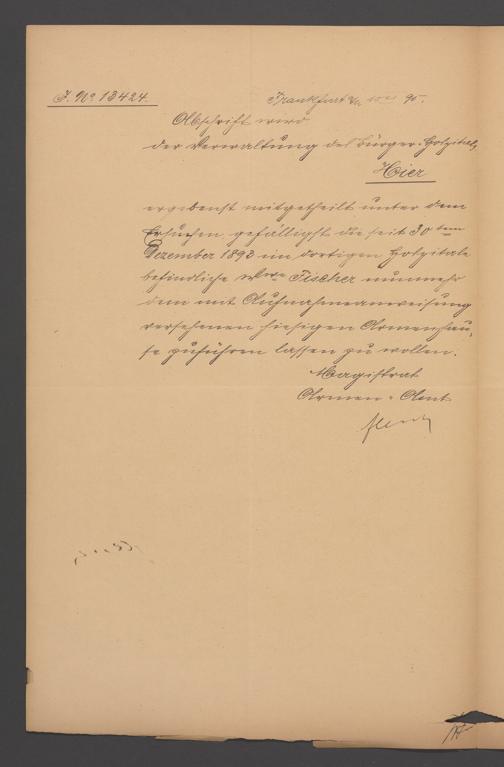 J. No. 13424.
Frankfurt a/M. 95.
Abschrift wird
der Verwaltung des Bürger-Hospitals
Hier
ergebenst mitgetheilt unter dem
Ersuchen gefälligst die seit 30 tem
Dezember 1893 im dortigen Hospitale
befindliche Wwe. Fischer nunmehr
dem mit Aufnahmeanweisung
versehenen hiesigen Armenhau-
se zuführen lassen zu wollen.
Magistrat
Armen-Amt